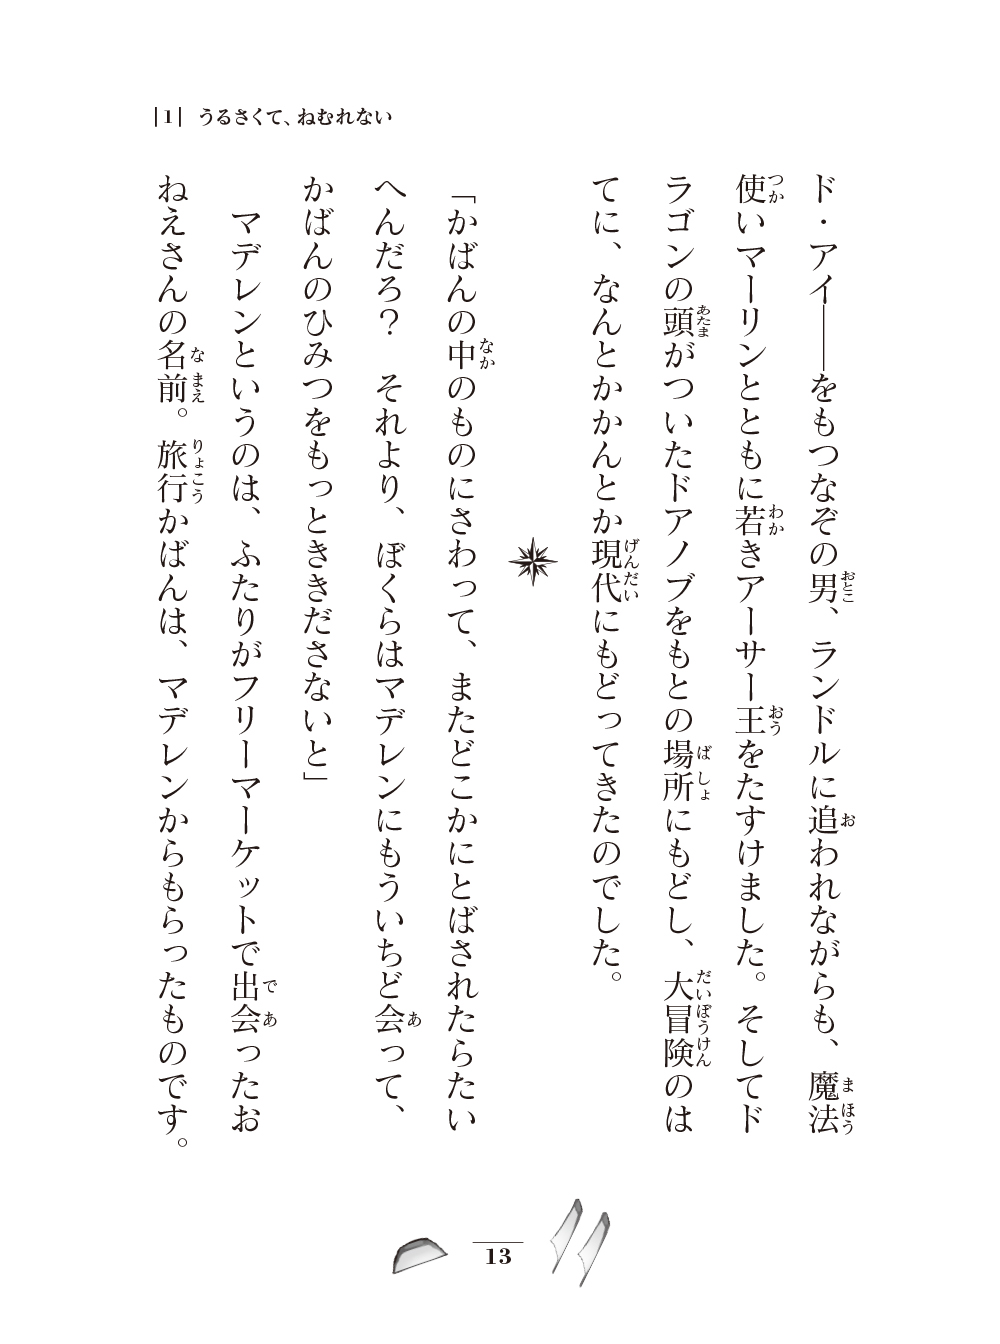 |1| うるさくて、ねむれない
ド・アイ――をもつなぞの男、ランドルに追われながらも、魔法
使いマーリンとともに若きアーサー王をたすけました。そしてド
ラゴンの頭がついたドアノブをもとの場所にもどし、大冒険のは
てに、なんとかかんとか現代にもどってきたのでした。
「かばんの中のものにさわって、またどこかにとばされたらたい
へんだろ？　それより、ぼくらはマデレンにもういちど会って、
かばんのひみつをもっとききださないと」
　マデレンというのは、ふたりがフリーマーケットで出会ったお
ねえさんの名前。旅行かばんは、マデレンからもらったものです。
13